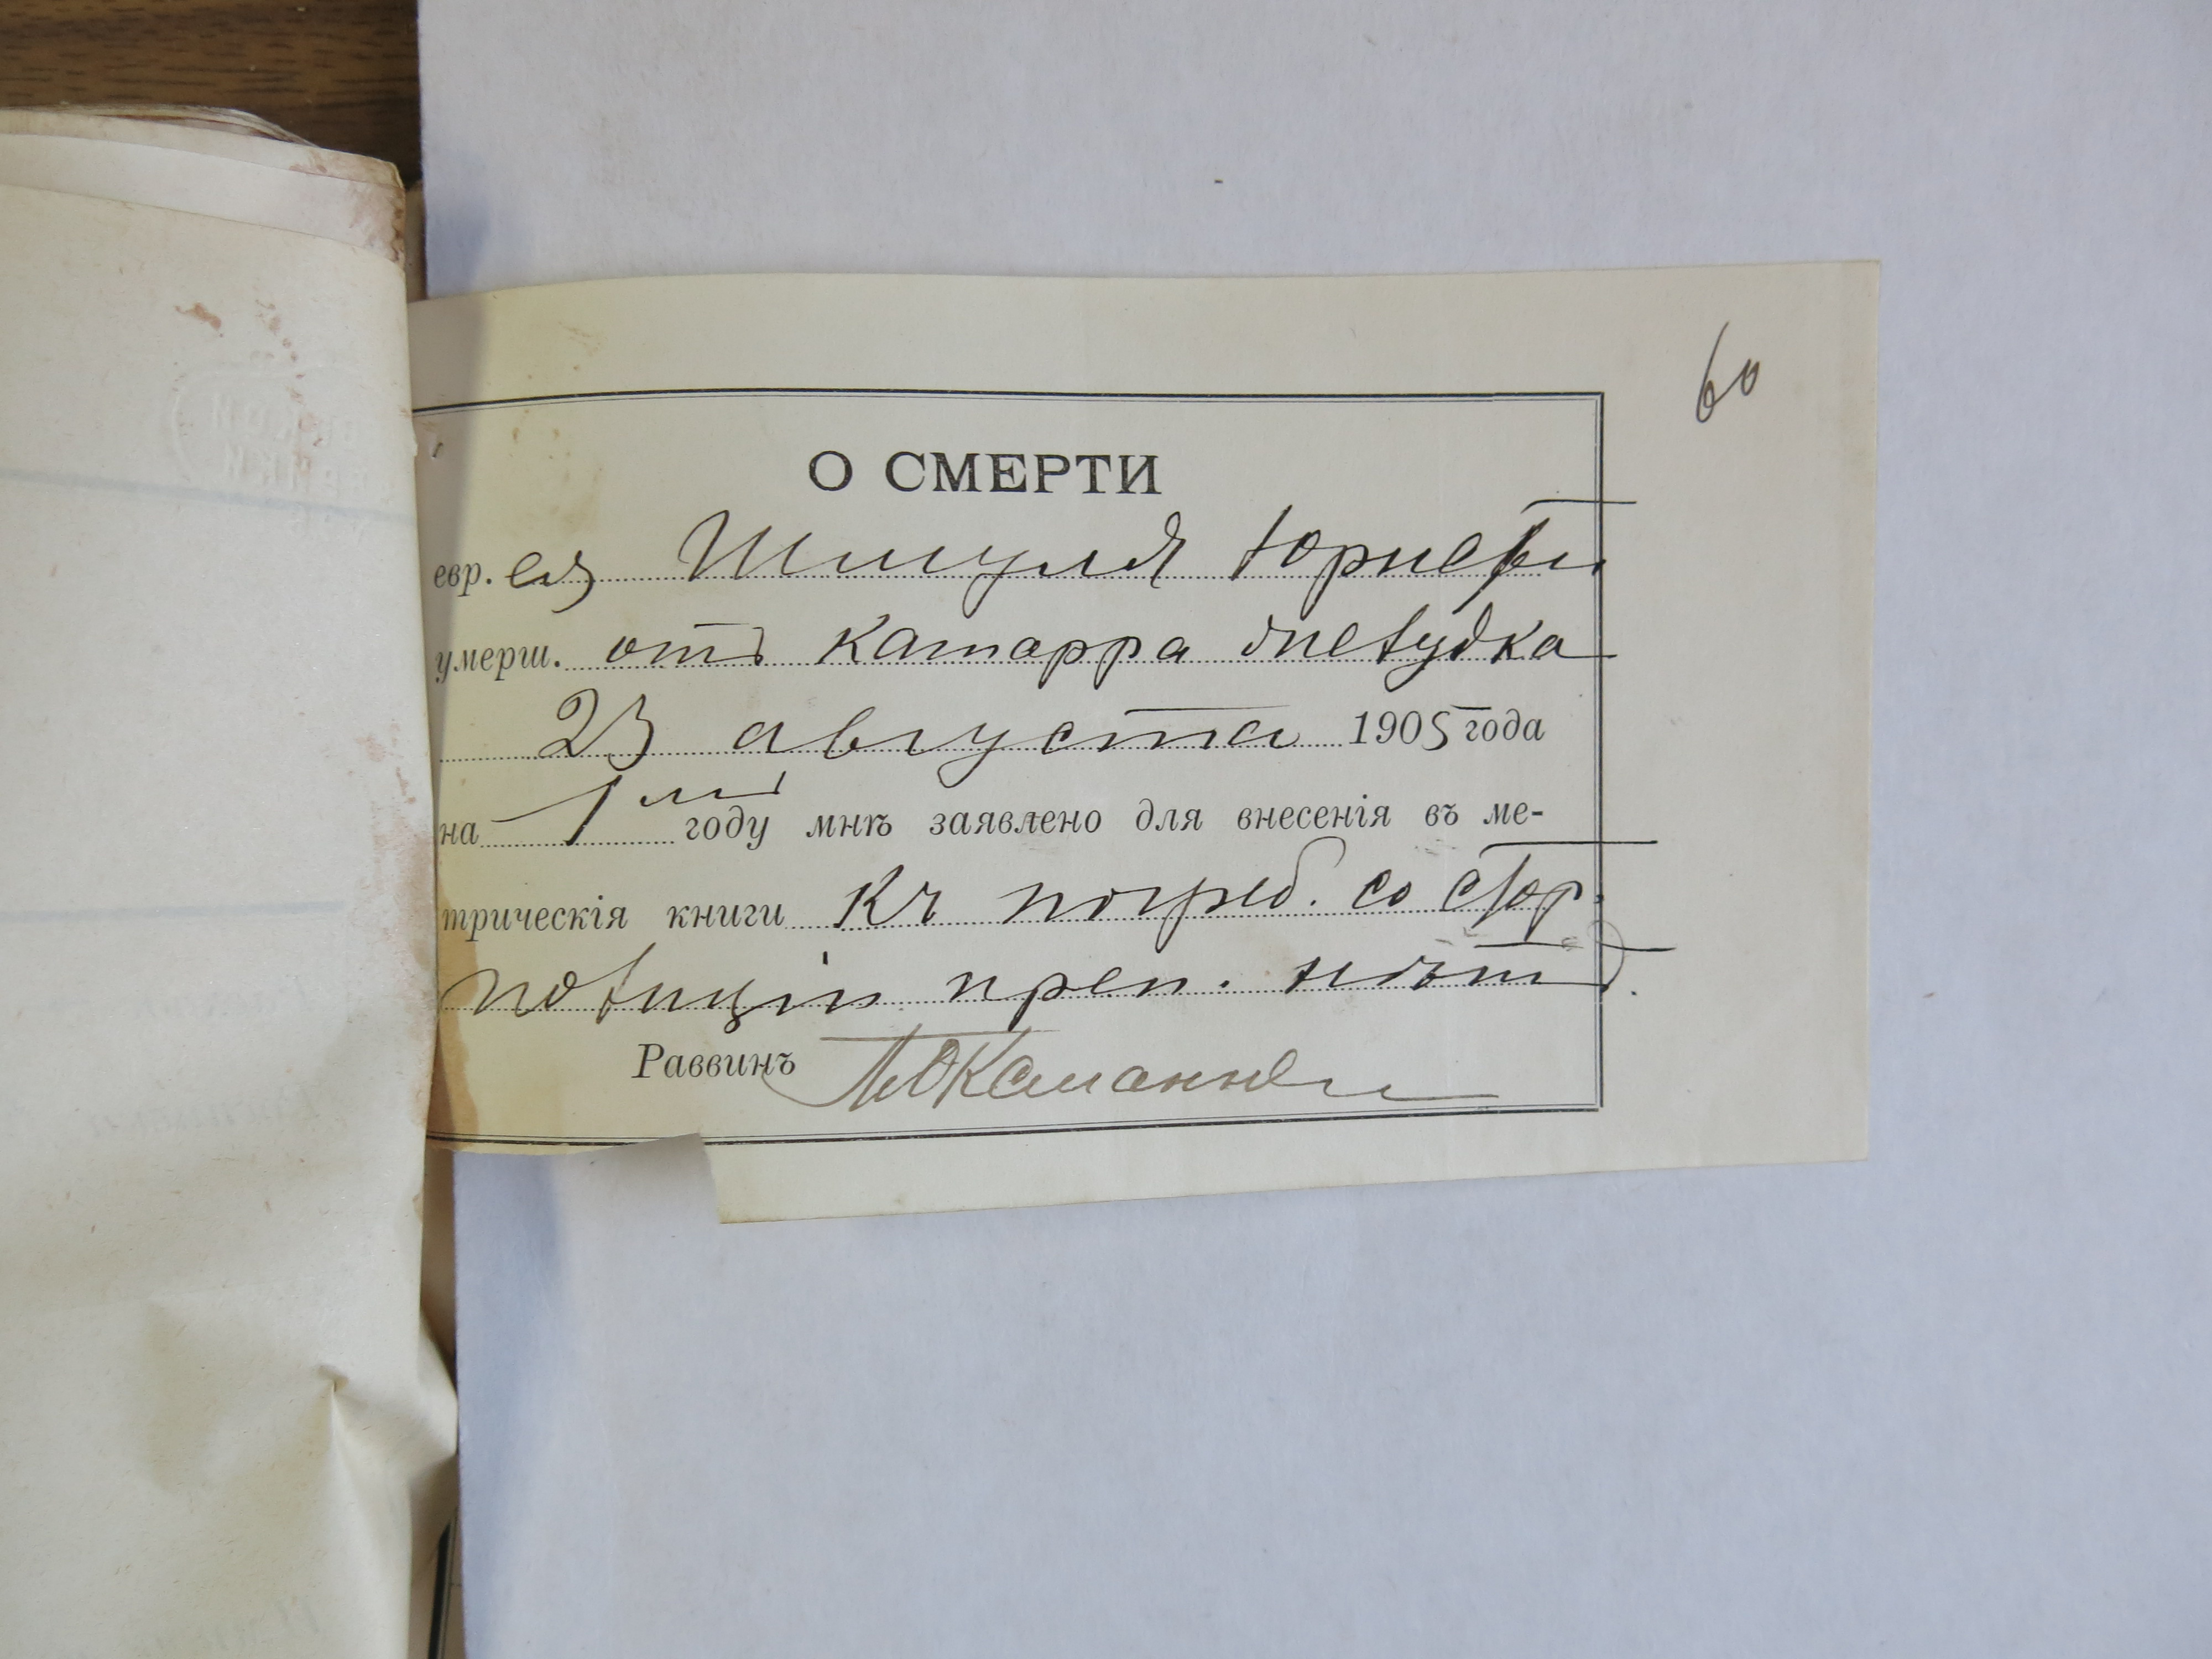 60
О СМЕРТИ
евр. ея Шмуля
умерш. отъ катарра желудка
23 августа 1905 года
на 1мъ году мнѣ заявлено для внесенія въ ме-
трическія книги Къ погреб. со стор.
полиціи преп. нѣтъ.
Раввинъ